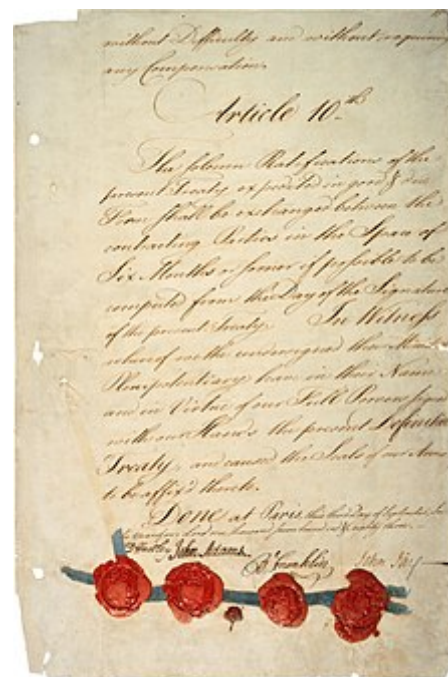 without Difficulty and without requiring
any Compensation.
Article 10th
The solemn Ratifications of the
present Treaty expedited in good & due
Form shall be exchanged between the
contracting Parties in the Space of
Six Months or sooner if possible to be
computed from the Day of the Signature
of the present Treaty. In Witness
whereof we the undersigned their
Plenipotentiary have in their Name
and in Virtue of our Full Powers signed
with our Hands the present Definitive
Treaty, and caused the Seals of our Arms
to be affix'd thereto.
DONE at Paris, this third Day of September,
one thousand seven hundred & eighty three.
D Hartley John Adams
B Franklin John Jay